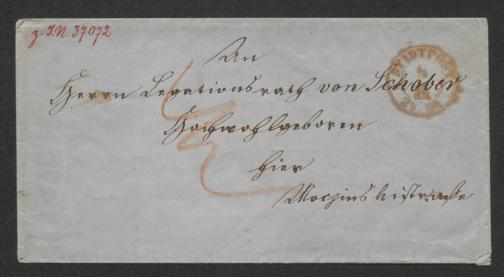 z. I.N. 37072
An
Herrn Legationsrath von Schober
Hochwohlgeboren
hier
STADTPOST